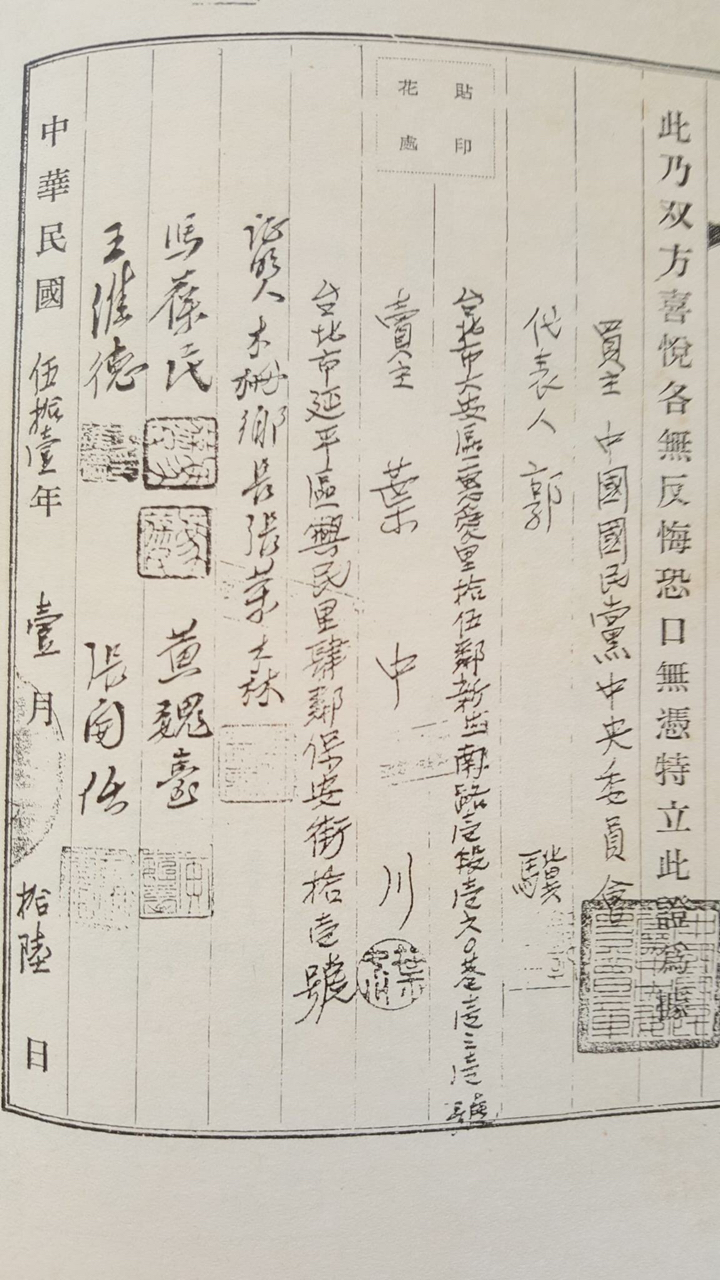 此乃双方喜悅各無反悔恐口無憑特立此證為據
買主 中國國民黨中央委員會
代表人 郭 驥
台北市大安區 愛里拾伍鄰新生南路壱段壱六〇巷壱三壱號
貼印花處
賣主 葉 中 川
台北市延平區興民里肆鄰保安街拾壱號
証明人 木柵鄉長張葉森
馬蔡氏 黃魏臺
王淮德 張
中華民國 伍拾壹年 壹月 拾陸日